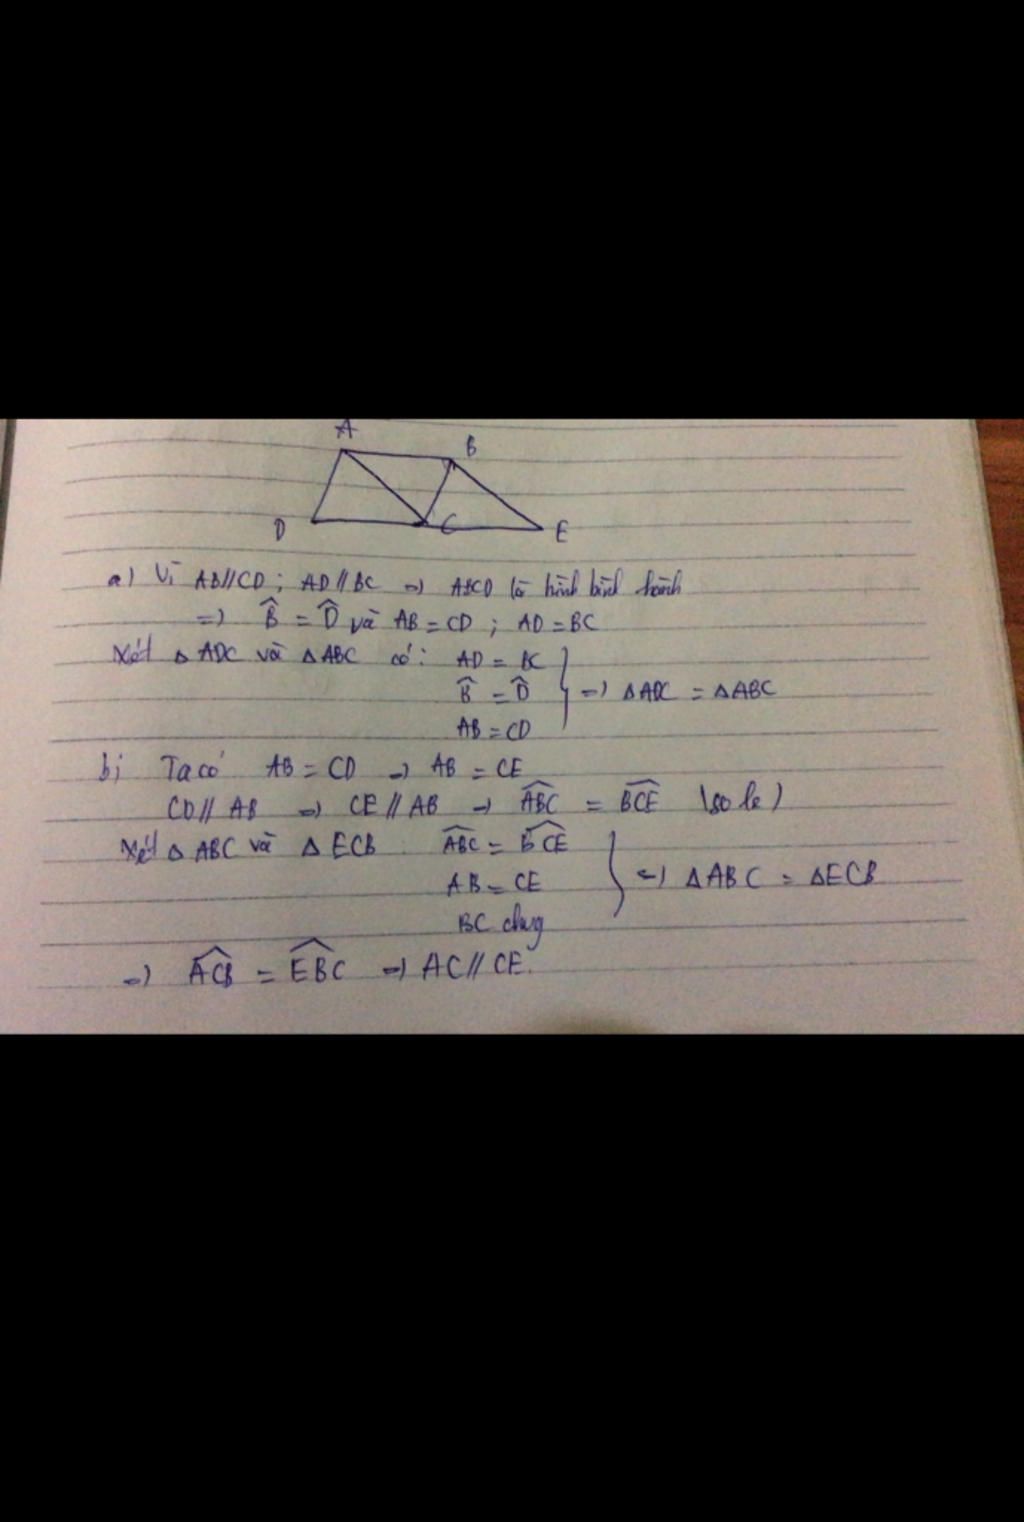 A
B
D
C
E
a) Vì AB//CD; AD//BC => ABCD là hình bình hành
=> B̂ = D̂ và AB = CD ; AD = BC
Xét △ ADC và △ ABC có: AD = BC
B̂ = D̂ => △ADC = △ABC
AB = CD
b) Ta có AB = CD => AB = CE
CD // AB => CE // AB => ABC^ = BCE^ (so le)
Xét △ ABC và △ ECB ABC^ = BCE^
AB = CE => △ABC = △ECB
BC chung
=> ACB^ = EBC^ => AC // CE.